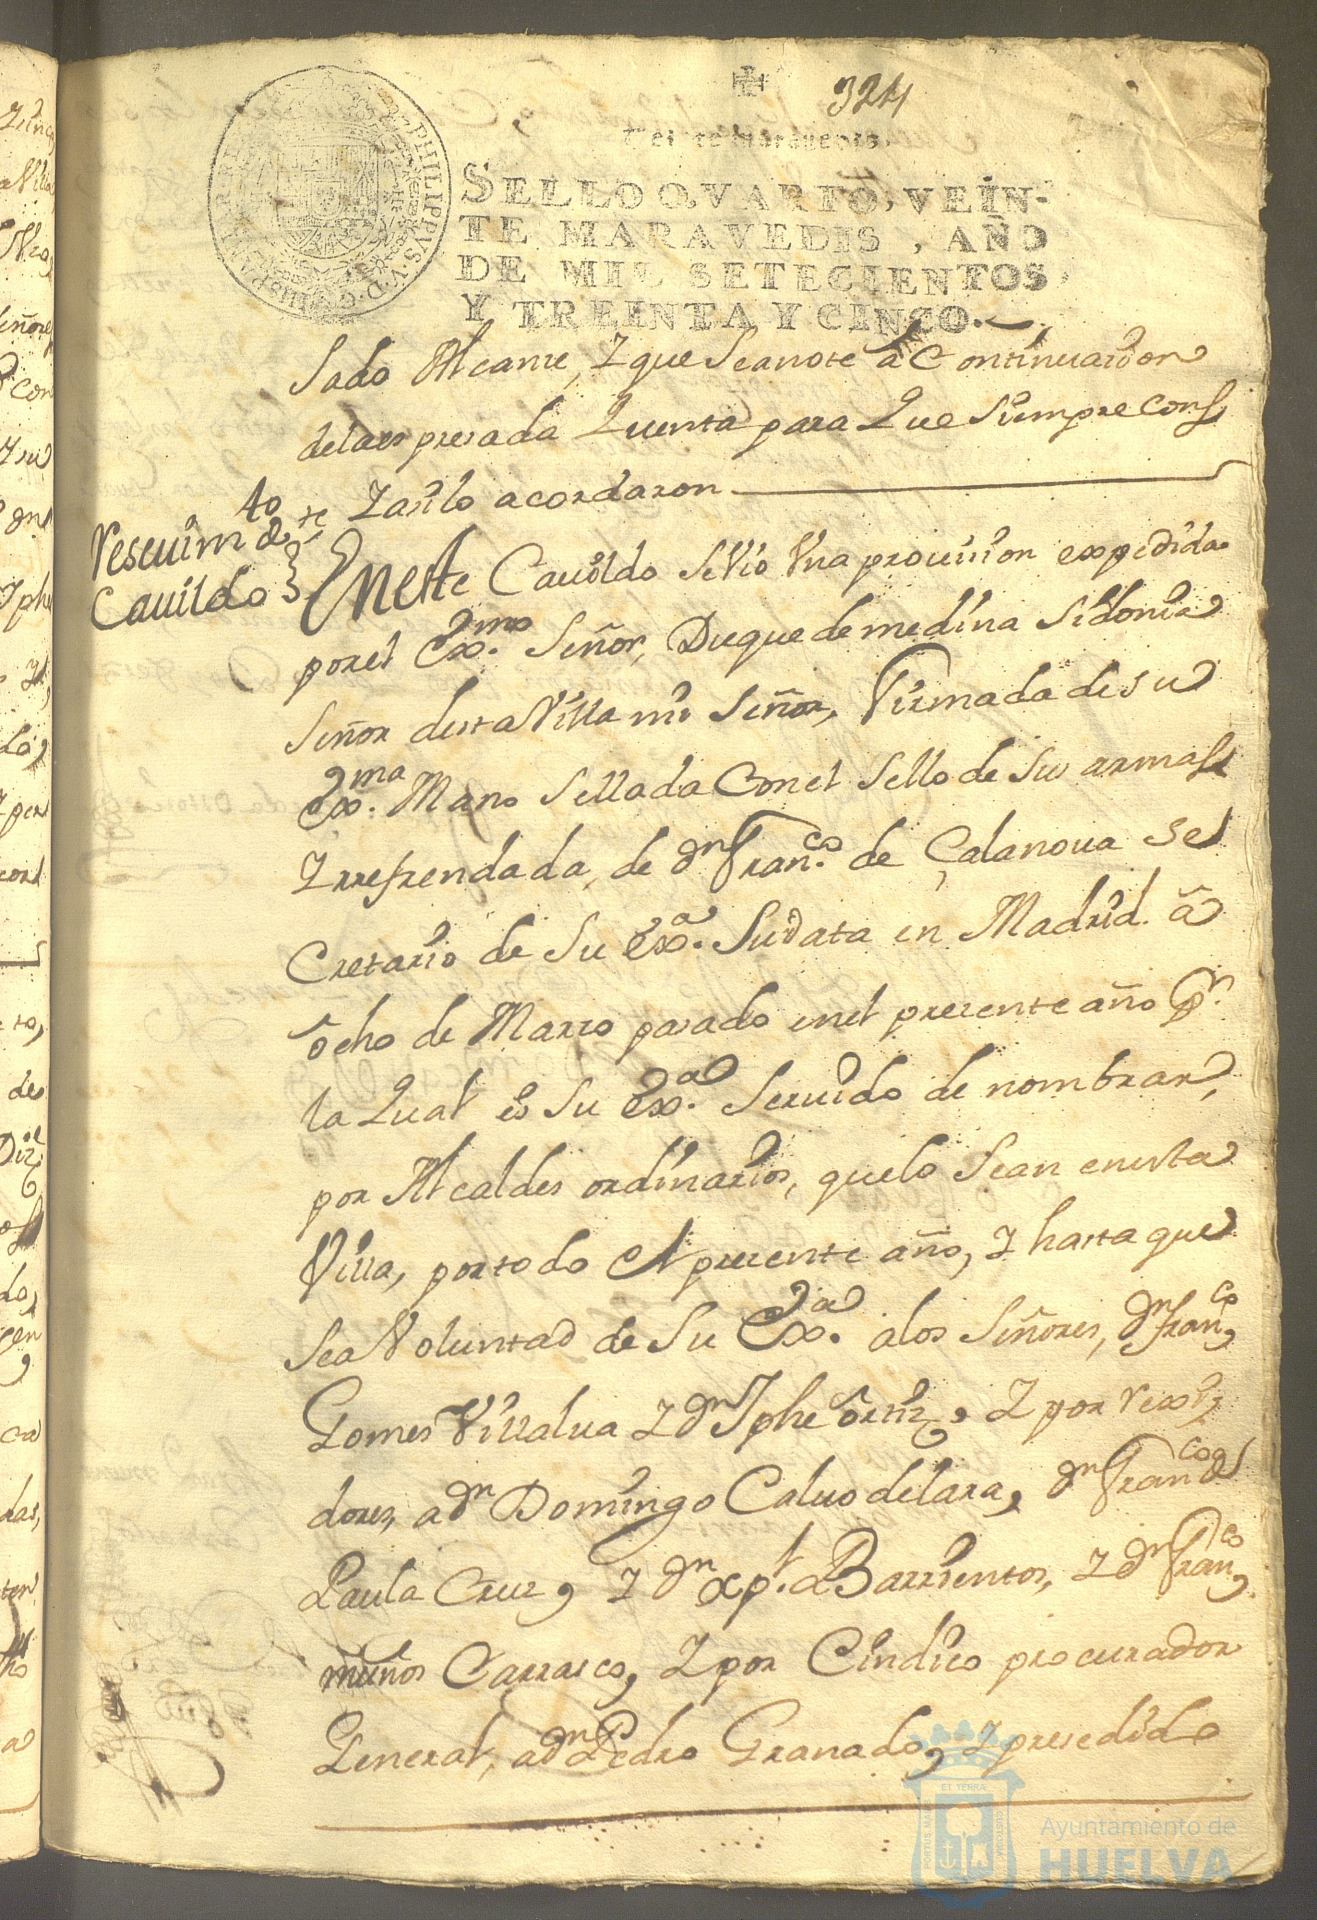 324
Veinte maravedis.
SELLO QVARTO, VEIN-
TE MARAVEDIS, AÑO
DE MIL SETECIENTOS,
Y TREINTA Y CINCO.
PHILIPPVS V D G HISPANIAR REX
sado Alcanze, Y que Seanote a Continuazion
delaes presada Quenta para Que Siempre Conste
Y asilo acordaron
Resevim to de
Cavildo
En este Cavildo SeVio Vna provision expedida
porel Ex.mo Señor, Duque de medina Sidonia
Señor destaVilla mi Señor, Firmada de su
Ex.ma Mano Sellada Conel Sello de Sus armas
Y rrefrendada, de Dn Fran.co de Casanoua Se
Cretario de Su Ex.a Sudata en Madrid â
ôcho de Marzo pasado enel presente año pr.
la Qual es Su Ex.a Seruido de nombrar,
por Alcaldes ordinarios, quelo Sean enesta
Villa, portodo el presente año, Y hasta que
Sea Voluntad de Su Ex.a alos Señores, Dn Fran.co
Gomes Villalua Y Dn Jphe ôrtiz, Y por rexi
dores, a Dn Domingo Caluo delara, Dn Franco de
Paula Cruz, Y Dn xptl. Barrientos, Y Dn Franco
muños Carrasco, Y por Cindico procurador
General, a Dn Pedro Granado, Y presedido
ET TERRA
Ayuntamiento de
HUELVA